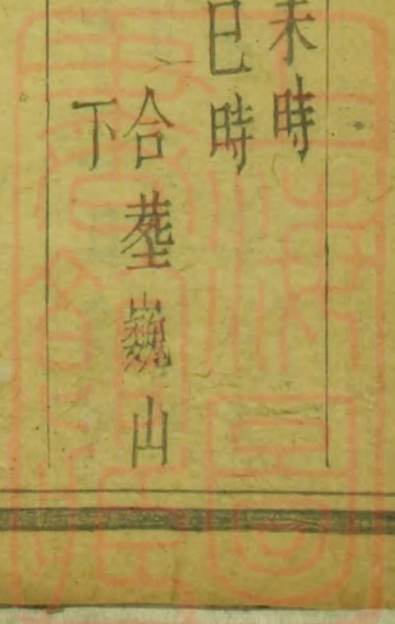 未時
巳時
合塟巍山
下